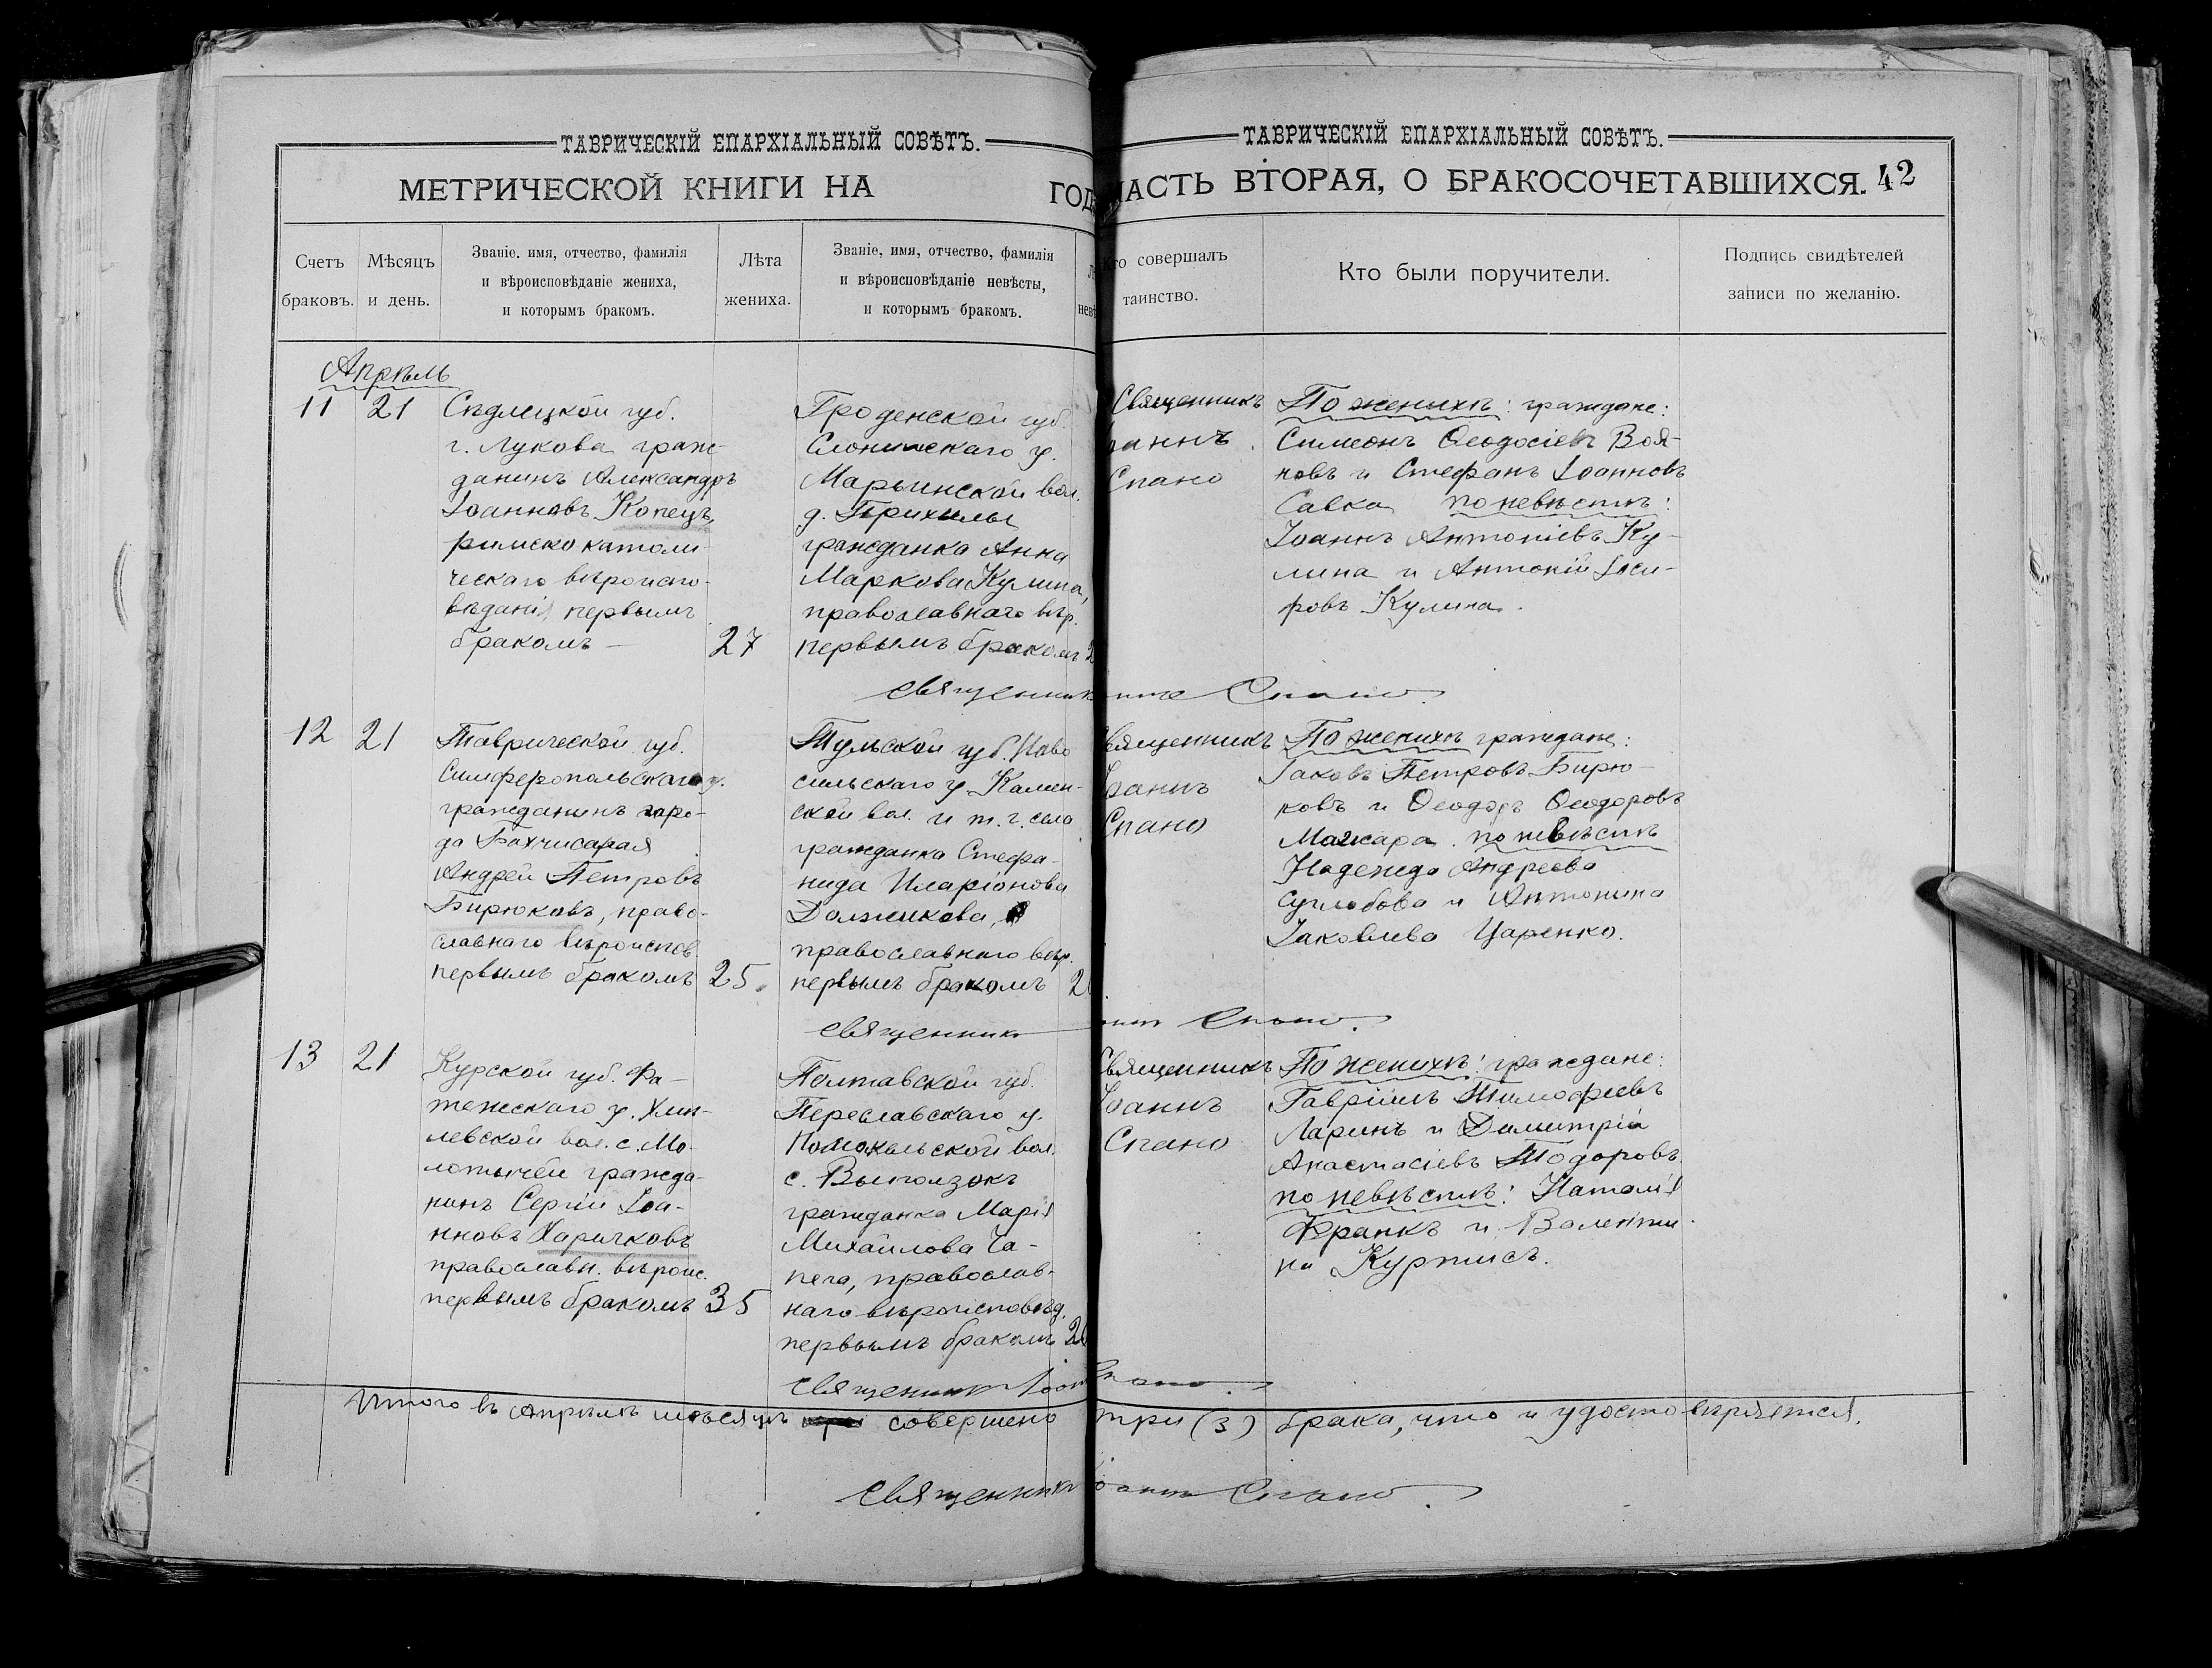 ТАВРИЧЕСКІЙ ЕПАРХІАЛЬНЫЙ СОВѢТЪ.
МЕТРИЧЕСКОЙ КНИГИ НА ГОД
Счетъ браковъ.
Мѣсяцъ и день.
Званіе. имя, отчество, фамилія
и вѣроисповѣданіе жениха,
и которымъ бракомъ.
Лѣта жениха.
Званіе, имя, отчество, фамилія
и вѣроисповѣданіе невѣсты,
и которымъ бракомъ.
ТАВРИЧЕСКІЙ ЕПАРХІАЛЬНЫЙ СОВѢТЪ.
ЧАСТЬ ВТОРАЯ, О БРАКОСОЧЕТАВШИХСЯ. 42
Кто совершалъ
таинство.
Кто были поручители.
Подпись свидѣтелей
записи по желанію.
Апрѣль
11 21
Сѣдлецкой губ.
г. Лукова граж-
данинъ Александръ
Іоанновъ Копецъ,
римско католи-
ческаго вѣроиспо-
вѣданія первымъ
бракомъ —
27
Гроденской губ.
Слонимскаго у.
Марьинской вол.
д.
гражданка Анна
Маркова Кулина,
православнаго вѣр.
первымъ бракомъ 2
Священникъ
Іоаннъ
Спано
По женихѣ: граждане:
Симеонъ Ѳеодосіевъ Воя-
новъ и Стефанъ Іоанновъ
Савка по невѣстѣ:
Іоаннъ Антоніевъ Ку-
лина и Антоній Іоси-
ровъ Кулина.
Священник Спано
12 21
Таврической губ.
Симферопольскаго у.
гражданинъ горо-
да Бахчисарая
Андрей Петровъ
Бирюковъ, право-
славнаго вѣроиспов.
первымъ бракомъ
25
Тульской губ. Ново
сильскаго у. Камен-
ской вол. и т. г. села
гражданка Стефа-
нида Иларіонова
Должикова,
православнаго вѣр.
первымъ бракомъ 2
Священникъ
Іоаннъ
Спано
По женихѣ граждане:
Іаковъ Петровъ Бирю-
ковъ и Ѳеодоръ Ѳеодоровъ
Мажара. по невѣстѣ
Надежда Андреева
Суглобова и Антонина
Іаковлева Царенко.
Священник Спано.
13 21
Курской губ. Фа-
тежскаго у. Хмѣ-
левской вол. с. Мо-
лотычей гражда-
нинъ Сергій Іоа-
нновъ Харичковъ
православн. вѣроис.
первымъ бракомъ
35
Полтавской губ.
Переславскаго у.
Помокельской вол.
с. Выползокъ
гражданка Марія
Михайлова Ча-
пега, православ-
наго вѣроисповѣд.
первымъ бракомъ 2
Священникъ
Іоаннъ
Спано
По женихѣ: граждане:
Гавріилъ Тимофеевъ
Ларинъ и Димитрій
Анастасіевъ Тодоровъ
по невѣстѣ: Наталія
Франкъ и Валенти-
на Куртисъ.
Священник Іоан Спано.
Итого въ Апрѣлѣ мѣсяцѣ совершено три (3) брака, что и удостовѣряется.
Священникъ Іоаннъ Спано.